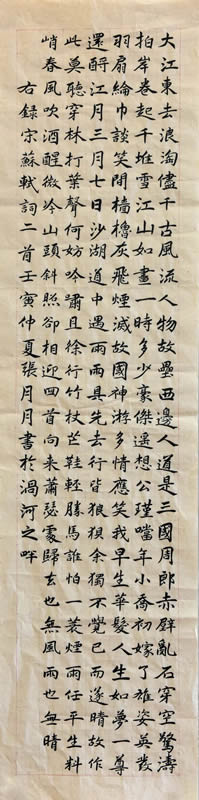 大江東去浪淘儘千古風流人物故壘西邊人道是三國周郎赤壁亂石穿空驚濤
拍岸卷起千堆雪江山如畫一時多少豪傑遥想公瑾噹年小喬初嫁了雄姿英發
羽扇綸巾談笑間檣櫓灰飛煙滅故國神游多情應笑我早生華髮人生如夢一尊
還酹江月三月七日沙湖道中遇雨雨具先去行皆狼狽余獨不覺已而遂晴故作
此莫聽穿林打葉聲何妨吟嘯且徐行竹杖芒鞋輕勝馬誰怕一蓑煙雨任平生料
峭春風吹酒醒微冷山頭斜照卻相迎回首向来蕭瑟處歸去也無風雨也無晴
右録宋蘇軾詞二首壬寅仲夏張月月書於渦河之畔